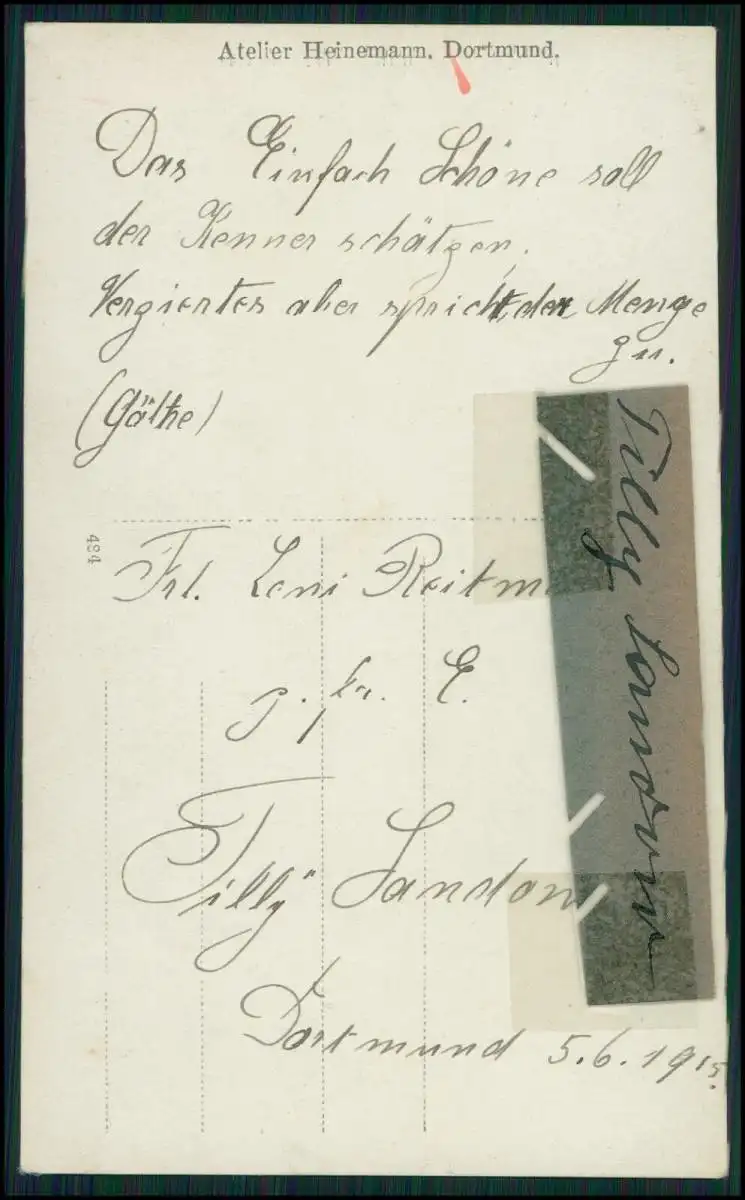 Atelier Heinemann, Dortmund.
Das Einfach Schöne soll
der Kenner schätzen,
Verziertes aber spricht, der, Menge
zu.
(Göthe)
484
Frl. Leni
z. fr. E.
Tilly
Dortmund 5.6.1915.
Tilly